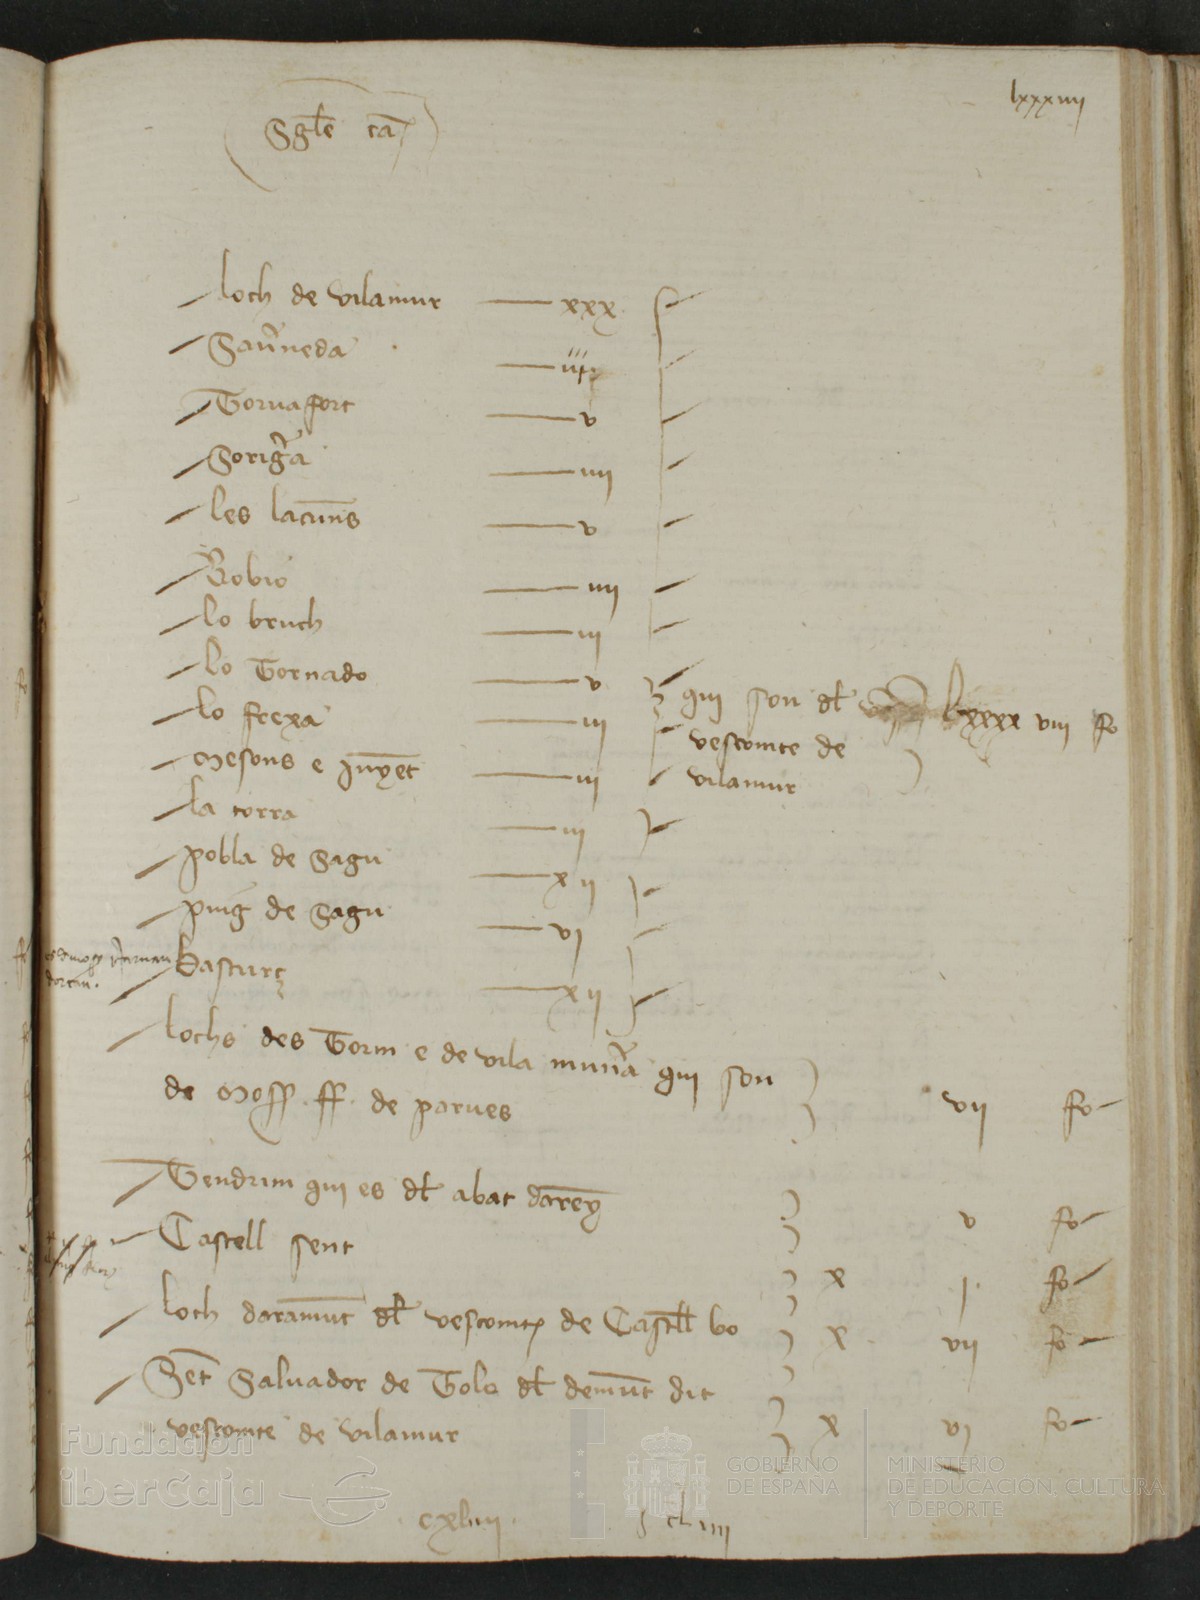 lxxxiiij
loch de vilamur xxx
Sauneda iiij
Tornafort v
Soriga iiij
les lacuns v
Robio iiij
lo bruch iij
lo Tornado v
lo frexa iij
Mesons e iij
la torra iij
pobla de Sagu xij
puig de Sagu vj
basturç xij
qui son dl
vescomte de
vilamur
lxxxx viii fo
lochs des Torm e de vila qui son
de Moss. ff. de parues vij fo
Tendrun qui es dl abat v fo
Castell sent x j. fo
loch daramunt dl vescomte de Castell bo x vij fo
Sent Saluador de Tolo dl demunt dit
vescomte de vilamur x vj fo
cxliiij
cliiij
Fundación
iberCaja
GOBIERNO
DE ESPAÑA
MINISTERIO
DE EDUCACIÓN, CULTURA
Y DEPORTE